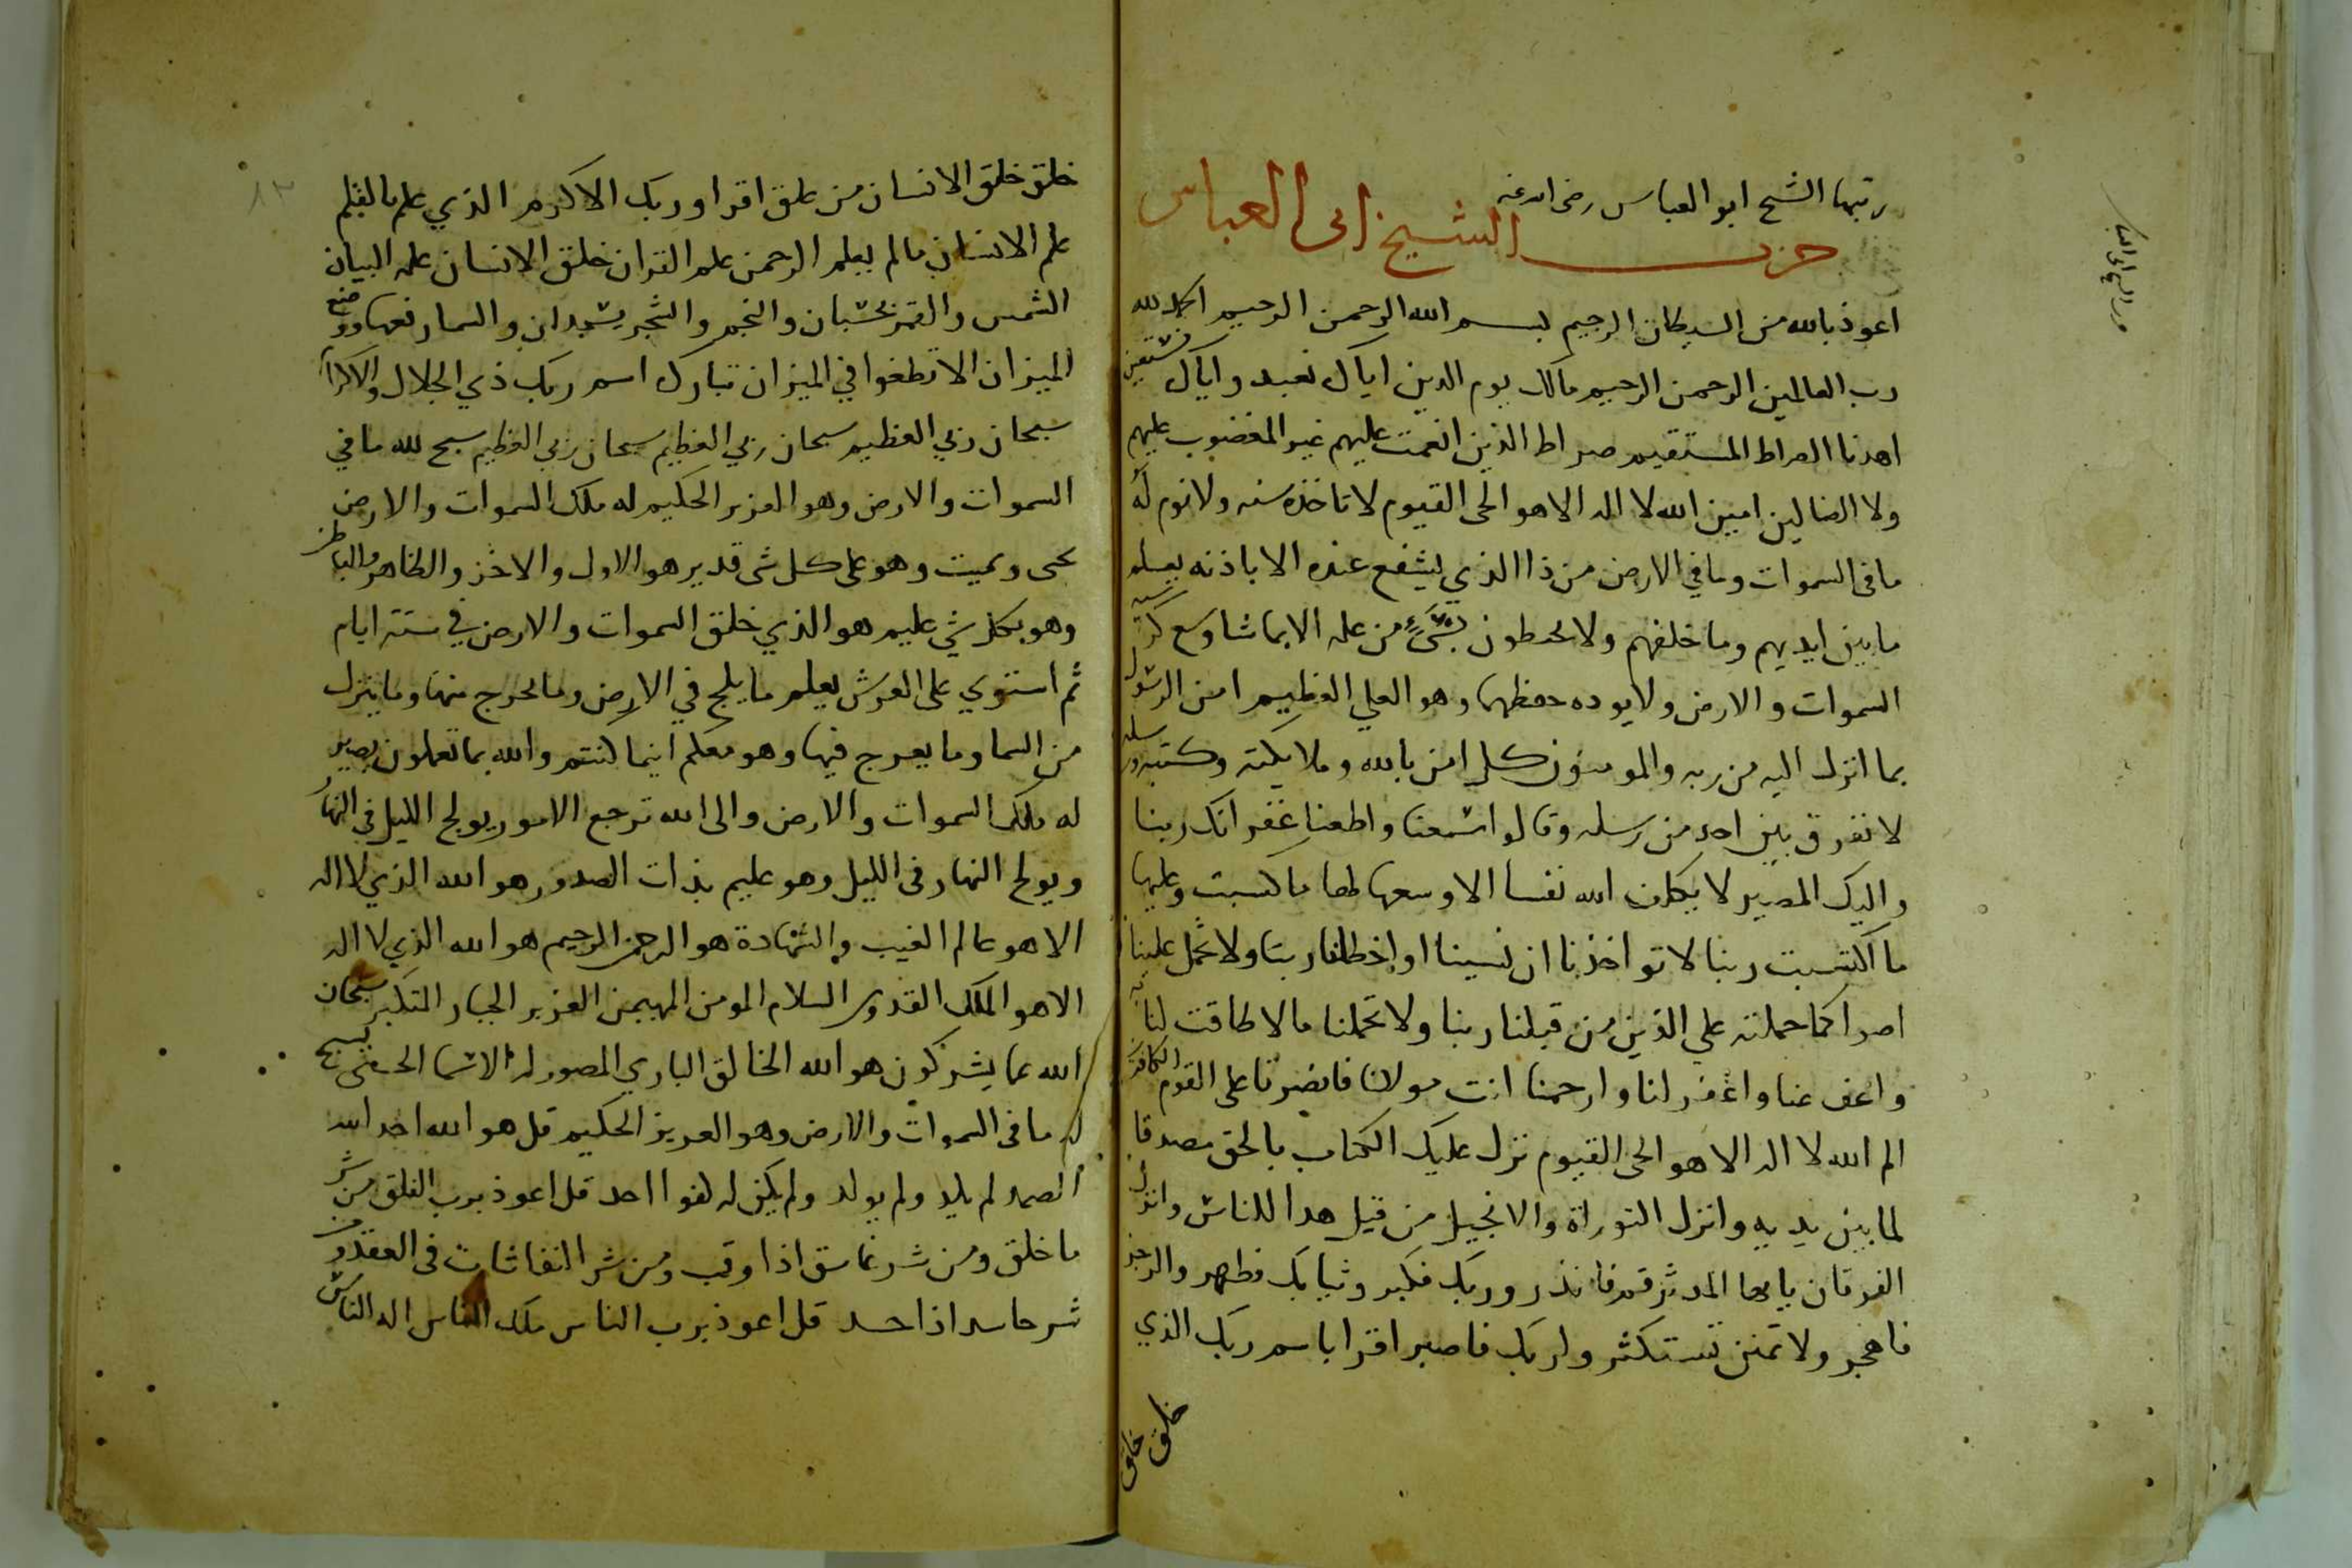 رتبها الشيخ ابو العباس رضى الله عنه
حزب الشيخ ابى العباس
اعوذ بالله من الشيطان الرجيم بسم الله الرحمن الرحيم الحمد لله
رب العالمين الرحمن الرحيم مالك يوم الدين اياك نعبد واياك نستعين
اهدنا الصراط المستقيم صراط الذين انعمت عليهم غير المغضوب عليهم
ولا الضالين امين الله لا اله الا هو الحى القيوم لا تاخذه سنه ولا نوم له
ما فى السموات وما في الارض من ذا الذي يشفع عنده الا باذنه يعلم
ما بين ايديهم وما خلفهم ولا يحيطون بشيء من علمه الا بما شا وسع كرسيه
السموات والارض ولا يوده حفظهما وهو العلي العظيم امن الرسول
بما انزل اليه من ربه والمومنون كل امن بالله وملايكته وكتبه ورسله
لا نفرق بين احد من رسله وقالوا سمعنا واطعنا غفرانك ربنا
واليك المصير لا يكلف الله نفسا الا وسعها لها ما كسبت وعليها
ما اكتسبت ربنا لا تواخذنا ان نسينا او اخطانا ربنا ولا تحمل علينا
اصرا كما حملته علي الذين من قبلنا ربنا ولا تحملنا ما لا طاقت لنا به
واعف عنا واغفر لنا وارحمنا انت مولانا فانصرنا على القوم الكافرين
الم الله لا اله الا هو الحى القيوم نزل عليك الكتاب بالحق مصدقا
لما بين يديه وانزل التوراة والانجيل من قبل هدا للناس وانزل
الفرقان يا ايها المدثر قم فانذر وربك فكبر وثيابك فطهر والرجز
فاهجر ولا تمنن تستكثر ولربك فاصبر اقرا باسم ربك الذي
خلق خلق
خلق خلق الانسان من علق اقرا وربك الاكرم الذي علم بالقلم
علم الانسان ما لم يعلم الرحمن علم القران خلق الانسان علمه البيان
الشمس والقمر بحسبان والنجم والشجر يسجدان والسما رفعها ووضع
الميزان الا تطغوا في الميزان تبارك اسم ربك ذي الجلال والاكرام
سبحان ربي العظيم سبحان ربي العظيم سبحان ربي العظيم سبح لله ما في
السموات والارض وهو العزيز الحكيم له ملك السموات والارض
يحى ويميت وهو على كل شى قدير هو الاول والاخر والظاهر والباطن
وهو بكل شي عليم هو الذي خلق السموات والارض في ستة ايام
ثم استوي على العرش يعلم ما يلج في الارض وما يخرج منها وما ينزل
من السما وما يعرج فيها وهو معكم اينما كنتم والله بما تعملون بصير
له ملك السموات والارض والى الله ترجع الامور يولج الليل في النهار
ويولج النهار فى الليل وهو عليم بذات الصدور هو الله الذي لا اله
الا هو عالم الغيب والشهادة هو الرحمن الرحيم هو الله الذي لا اله
الا هو الملك القدوس السلام المومن المهيمن العزيز الجبار المتكبر سبحان
الله عما يشركون هو الله الخالق الباري المصور له الاسما الحسنى يسبح
له ما فى السموات والارض وهو العزيز الحكيم قل هو الله احد الله
الصمد لم يلد ولم يولد ولم يكن له كفوا احد قل اعوذ برب الفلق من شر
ما خلق ومن شر غاسق اذا وقب ومن شر النفاثات فى العقد ومن
شر حاسد اذا حسد قل اعوذ برب الناس ملك الناس اله الناس